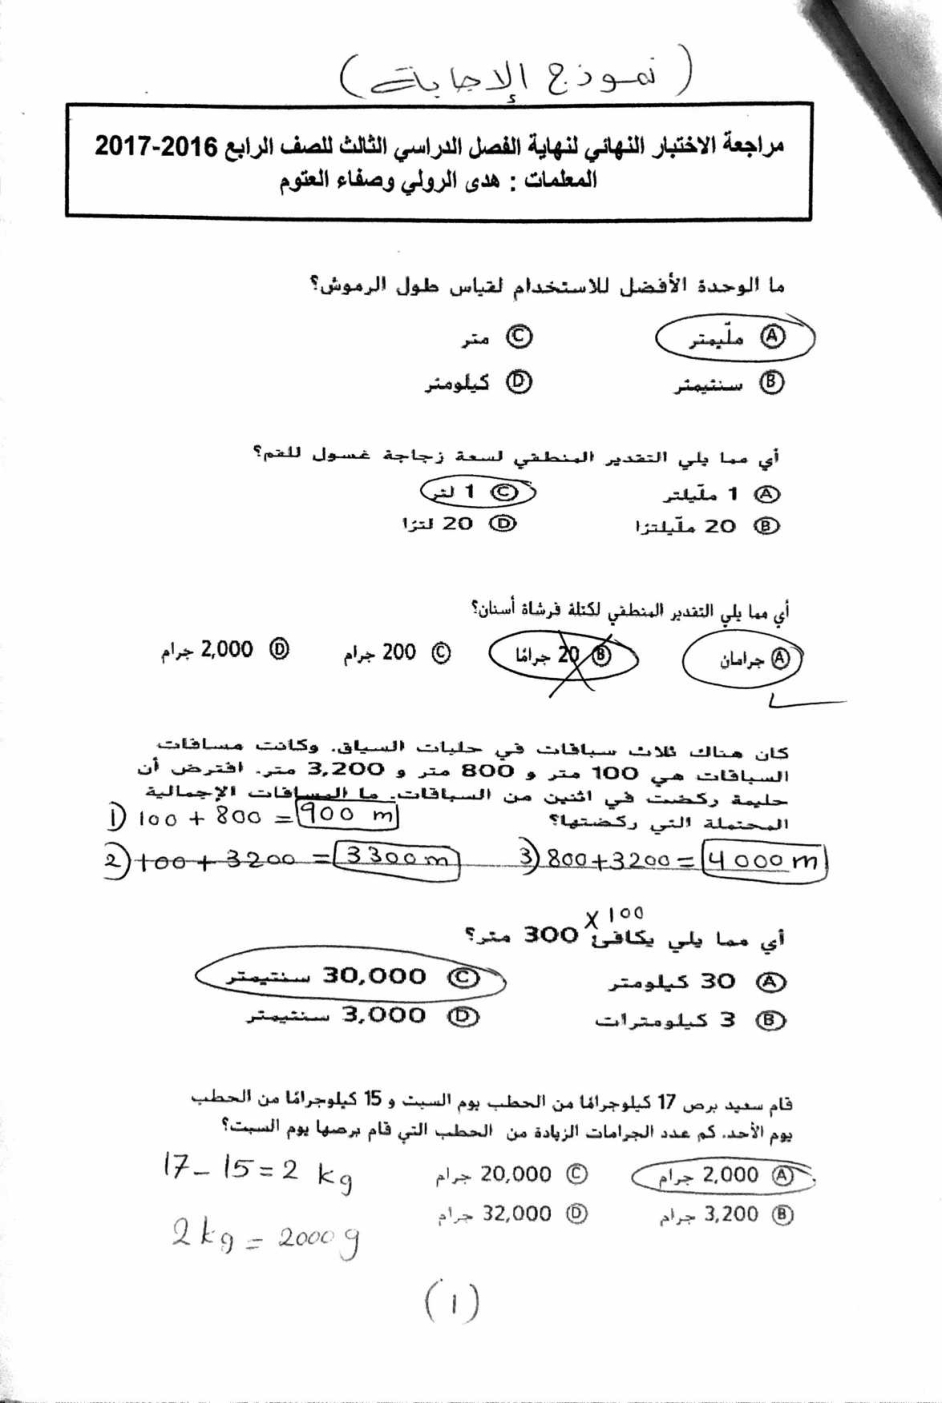 ( نموذج الإجابة )
مراجعة الاختبار النهائي لنهاية الفصل الدراسي الثالث للصف الرابع 2016-2017
المعلمات : هدى الرولي وصفاء العتوم
ما الوحدة الأفضل للاستخدام لقياس طول الرموش؟
A ملّيمتر C متر
B سنتيمتر D كيلومتر
أي مما يلي التقدير المنطقي لسعة زجاجة غسول للفم؟
A 1 ملّيلتر C 1 لتر
B 20 ملّيلترًا D 20 لترًا
أي مما يلي التقدير المنطقي لكتلة فرشاة أسنان؟
A جرامان B 20 جرامًا C 200 جرام D 2,000 جرام
كان هناك ثلاث سباقات في حلبات السباق. وكانت مسافات
السباقات هي 100 متر و 800 متر و 3,200 متر. افترض أن
حليمة ركضت في اثنين من السباقات. ما المسافات الإجمالية
المحتملة التي ركضتها؟
1) 100 + 800 = 900 m
2) 100 + 3200 = 3300 m 3) 800+3200 = 4000 m
x 100
أي مما يلي يكافئ 300 متر؟
A 30 كيلومتر C 30,000 سنتيمتر
B 3 كيلومترات D 3,000 سنتيمتر
قام سعيد برص 17 كيلوجرامًا من الحطب يوم السبت و 15 كيلوجرامًا من الحطب
يوم الأحد. كم عدد الجرامات الزيادة من الحطب التي قام برصها يوم السبت؟
A 2,000 جرام C 20,000 جرام
B 3,200 جرام D 32,000 جرام
17 - 15 = 2 kg
2 kg = 2000 g
(1)